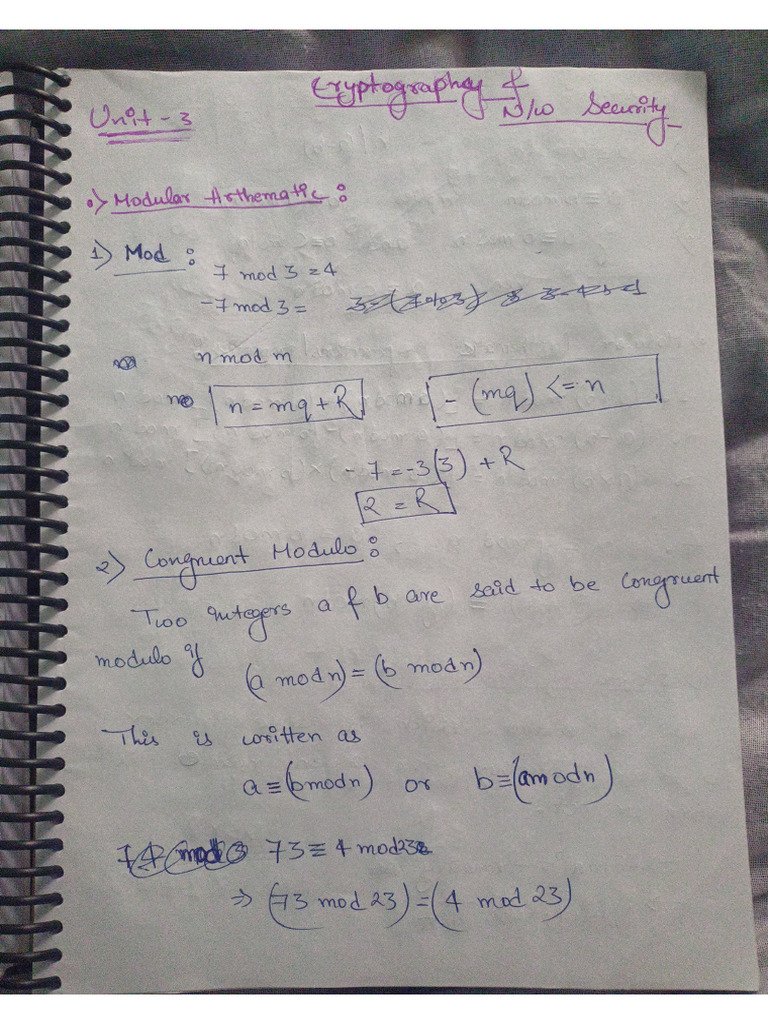 Cryptography &
N/w Security
Unit - 3
•) Modular Arthematic :
1) Mod :
7 mod 3 = 4
-7 mod 3 =
n mod m
n = mq + R
- (mq) <= n
-7 = -3(3) + R
2 = R
2) Congruent Modulo :
Two integers a & b are said to be congruent
modulo if
(a mod n) = (b mod n)
This is written as
a ≡ (b mod n) or b ≡ (a mod n)
73 ≡ 4 mod 23
⇒ (73 mod 23) = (4 mod 23)